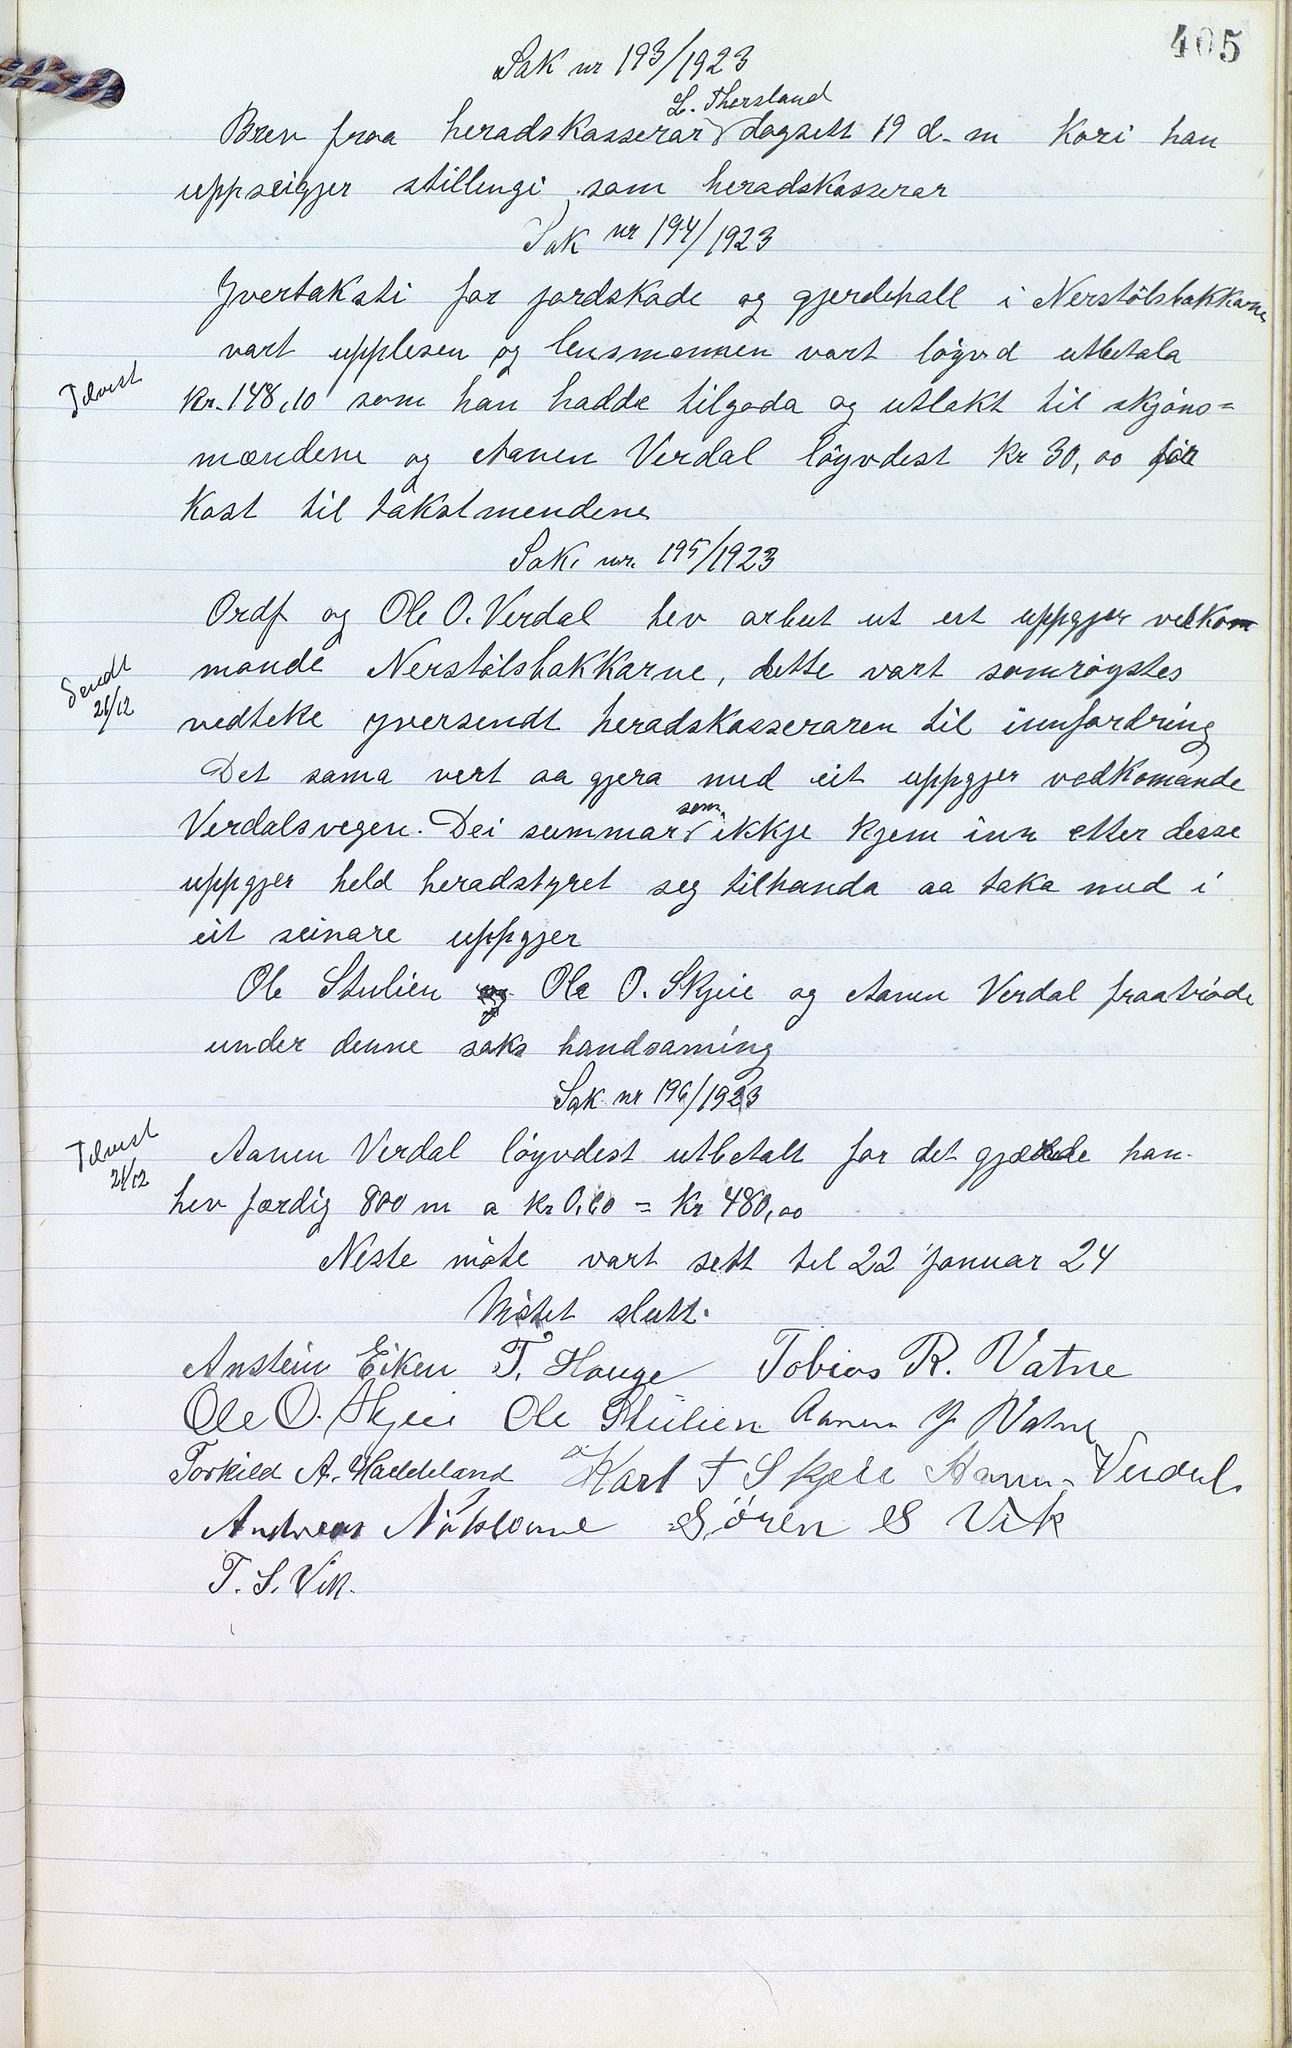 405
Sak nr 193/1923
L. Thersland
Brev fraa heradskasserar dagsett 19 d.m kori han
uppseigjer stillingi som heradskasserar
Sak nr 194/1923
Yvertaksti for jordskade og gjerdehall i Nerstölsbakkarne
vart upplesen og lensmannen vart löyvd utbetala
Tilvist
kr. 148,10 som han hadde tilgoda og utlakt til skjöns=
mændene og Aanen Verdal löyvdest kr 30,00 for
kost til takstmendene
Sak. nr. 195/1923
Ordf og Ole O. Verdal hev arbeit ut eit uppgjer vedkom
mande Nerstölsbakkarne, dette vart samröystes
Sendt 21/12
vedteke yversendt heradskasseraren til innfordring
Det sama vert aa gjera med eit uppgjer vedkomande
som
Verdalsvegen. Dei summar ikkje kjem inn etter desse
uppgjer held heradstyret seg tilhanda aa taka med i
eit seinare uppgjer
Ole Stulien Ole O. Skjeie og Aanen Verdal fraatröde
under denne saks handsaming
Sak nr 196/1923
Tilvist 21/12
Aanen Verdal löyvdest utbetalt for det gjærde han
hev færdig 800 m a kr 0,60 = kr 480,00
Neste möte vart sett til 22 januar 24
Mötet slutt.
Anstein Eiken T. Hauge Tobias R. Vatne
Ole O. Skjeie Ole Stulien Aanen J Vatne
Torkild A. Haddeland Karl T Skjeie Aanen Verdal
Andreas Nöklanne Sören S Vik
T. S. Vik.